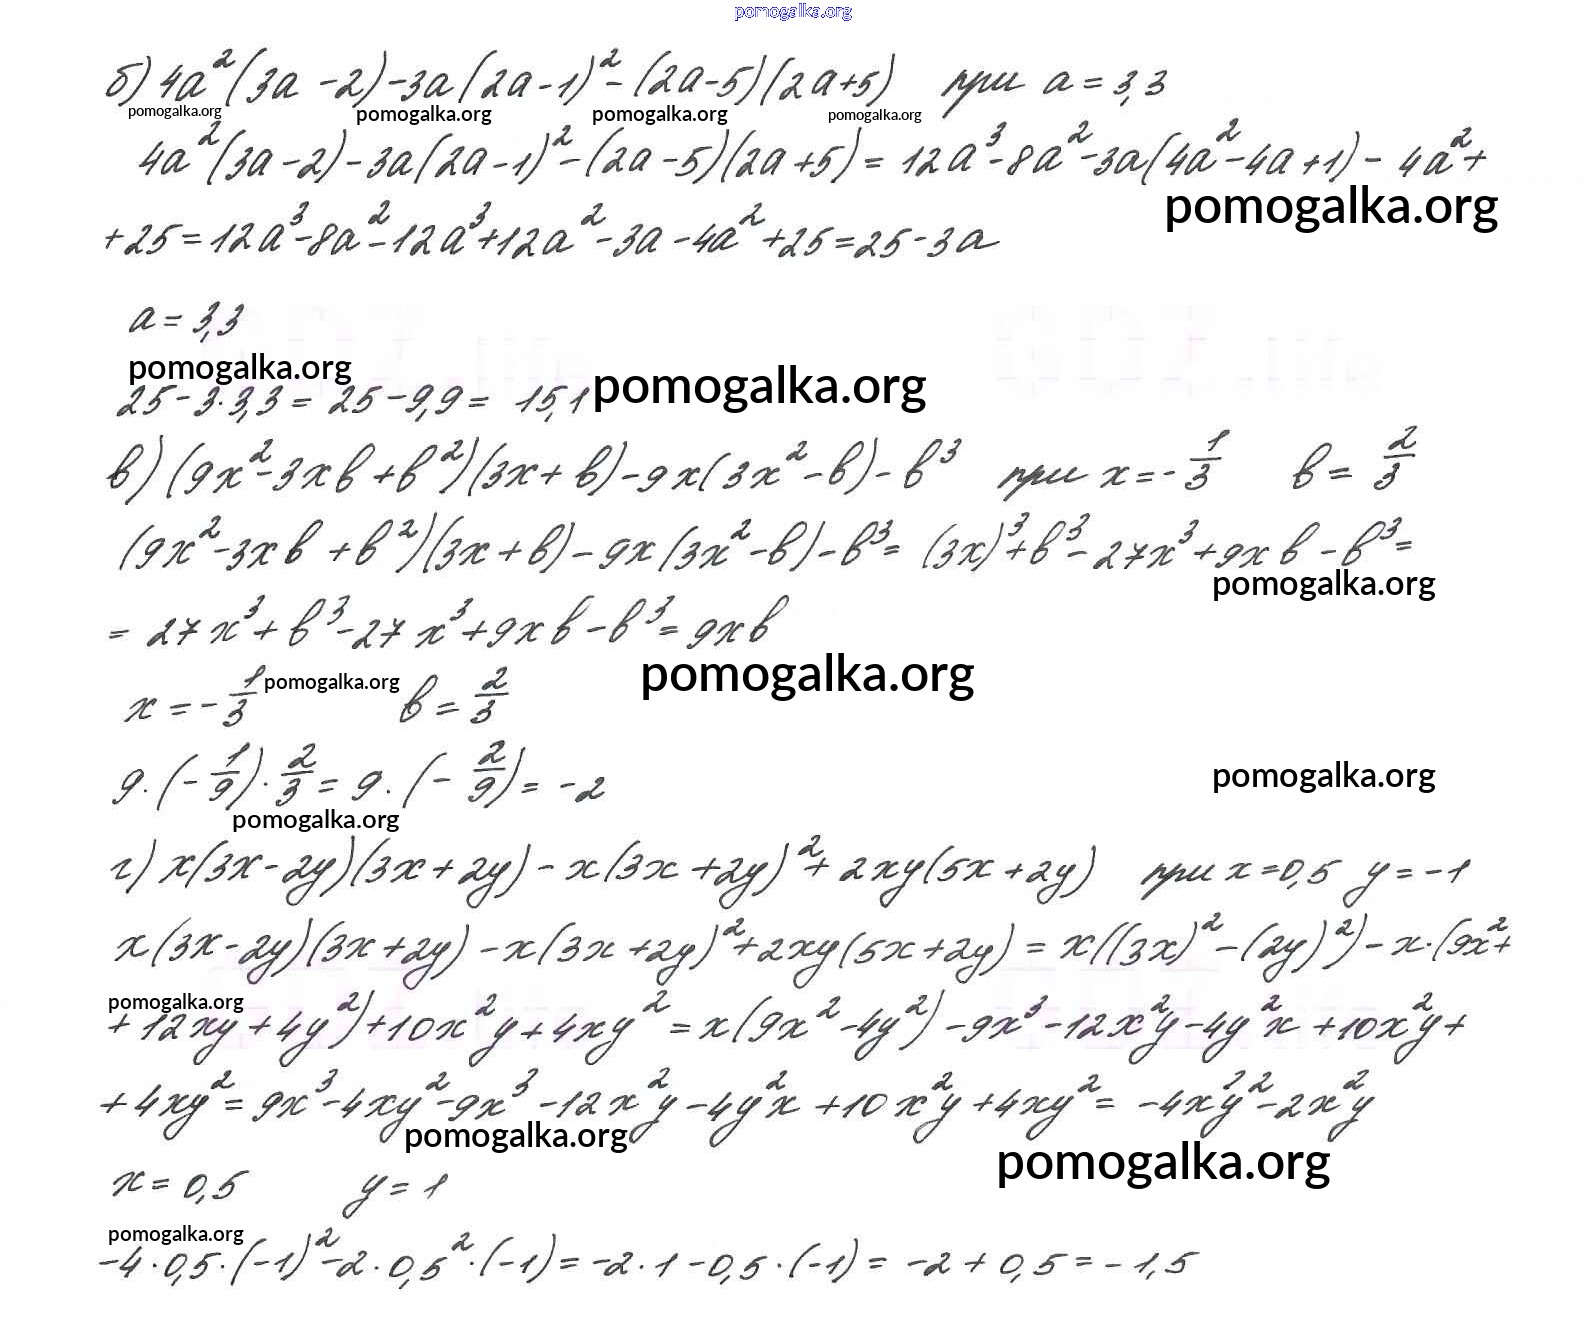 pomogalka.org
б) 4a²(3a - 2) - 3a(2a - 1)² - (2a - 5)(2a + 5) при a = 3,3
pomogalka.org pomogalka.org pomogalka.org pomogalka.org
4a²(3a - 2) - 3a(2a - 1)² - (2a - 5)(2a + 5) = 12a³ - 8a² - 3a(4a² - 4a + 1) - 4a² +
pomogalka.org
+ 25 = 12a³ - 8a² - 12a³ + 12a² - 3a - 4a² + 25 = 25 - 3a
a = 3,3
pomogalka.org pomogalka.org
25 - 3·3,3 = 25 - 9,9 = 15,1
в) (9x² - 3xb + b²)(3x + b) - 9x(3x² - b) - b³ при x = -1/3 b = 2/3
(9x² - 3xb + b²)(3x + b) - 9x(3x² - b) - b³ = (3x)³ + b³ - 27x³ + 9xb - b³ =
pomogalka.org
= 27x³ + b³ - 27x³ + 9xb - b³ = 9xb
pomogalka.org
x = -1/3 pomogalka.org b = 2/3
9·(-1/9)·2/3 = 9·(-2/9) = -2
pomogalka.org
pomogalka.org
г) x(3x - 2y)(3x + 2y) - x(3x + 2y)² + 2xy(5x + 2y) при x = 0,5 y = -1
x(3x - 2y)(3x + 2y) - x(3x + 2y)² + 2xy(5x + 2y) = x((3x)² - (2y)²) - x·(9x² +
pomogalka.org
+ 12xy + 4y²) + 10x²y + 4xy² = x(9x² - 4y²) - 9x³ - 12x²y - 4y²x + 10x²y +
+ 4xy² = 9x³ - 4xy² - 9x³ - 12x²y - 4y²x + 10x²y + 4xy² = -4xy² - 2x²y
pomogalka.org pomogalka.org
x = 0,5 y = 1
pomogalka.org
-4·0,5·(-1)² - 2·0,5²·(-1) = -2·1 - 0,5·(-1) = -2 + 0,5 = -1,5